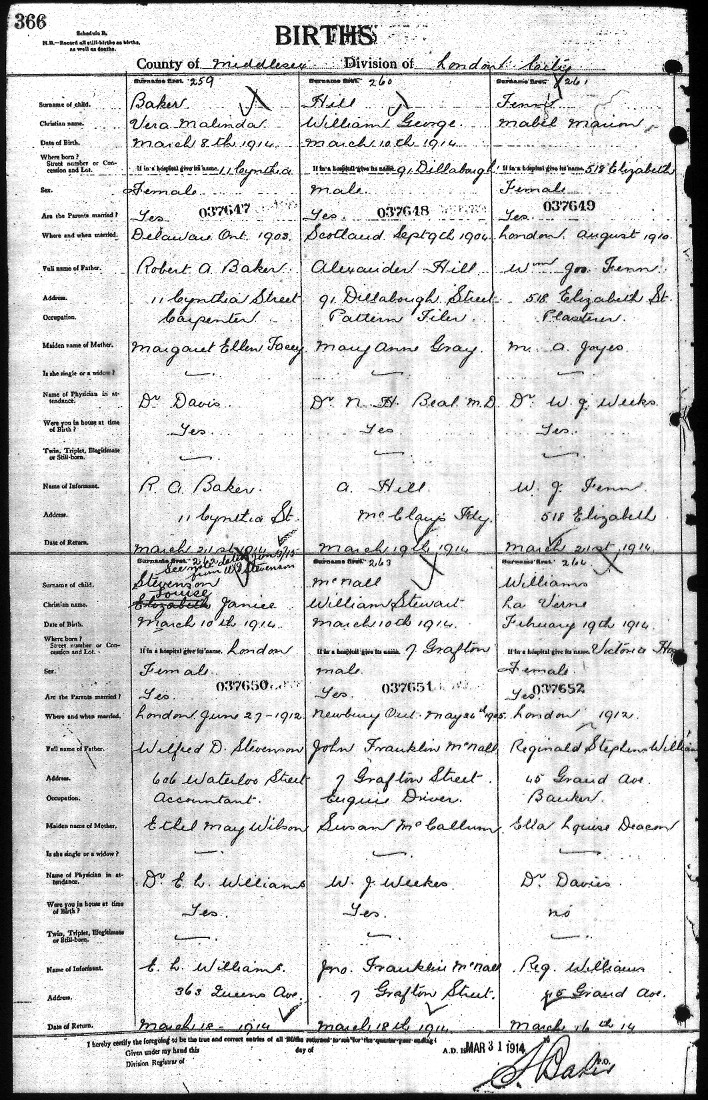 366
Schedule B.
N.B.—Record all still-births as births, as well as deaths.
BIRTHS
County of Middlesex Division of London City
Surname first. 259 Surname first. 260 Surname first. 261
Surname of child. Baker Hill Fenn
Christian name. Vera Malinda William George Mabel Marion
Date of Birth. March 8th 1914 March 10th 1914
Where born? Street number or Concession and Lot. If in a hospital give its name. 11 Cynthia If in a hospital give its name. 91 Dillabough If in a hospital give its name. 518 Elizabeth
Sex. Female male Female
Are the Parents married? Yes. 037647 Yes. 037648 Yes. 037649
Where and when married. Delaware Ont. 1903. Scotland Sept 9th 1904 London August 1910
Full name of Father. Robert A Baker Alexander Hill Wm Jos. Fenn
Address. 11 Cynthia Street 91 Dillabough Street 518 Elizabeth St.
Occupation. Carpenter Pattern Filer Plasterer.
Maiden name of Mother. Margaret Ellen Facey. Mary Anne Gray. M. A. Joyes
Is she single or a widow? — — —
Name of Physician in attendance. Dr Davis Dr N. H. Beal M.D. Dr W. J. Weeks
Were you in house at time of Birth? Yes. Yes Yes.
Twin, Triplet, Illegitimate or Still-born. — — —
Name of Informant. R. A. Baker. A. Hill W. J. Fenn
Address. 11 Cynthia St. McClarys Fdy. 518 Elizabeth
Date of Return. March 21st 1914 March 19th 1914 March 21st 1914
Surname first. 262 Surname first. 263 Surname first. 264
See note dated
from W. D. Stevenson
Surname of child. Stevenson McNall Williams
Louise
Christian name. Elizabeth Janice William Stewart La Verne
Date of Birth. March 10th 1914. March 10th 1914. February 19th 1914
Where born? Street number or Concession and Lot. If in a hospital give its name. London If in a hospital give its name. 7 Grafton If in a hospital give its name. Victoria Hos
Sex. Female male Female
Are the Parents married? Yes. 037650 Yes. 037651 Yes 037652
Where and when married. London June 27-1912. Newbury Ont. May 24th 1905. London 1912.
Full name of Father. Wilfred D. Stevenson John Franklin McNall Reginald Stephens William
Address. 606 Waterloo Street 7 Grafton Street. 45 Grand Ave.
Occupation. Accountant. Engine Driver. Banker
Maiden name of Mother. Ethel May Wilson Susan McCallum Ella Louise Deacon
Is she single or a widow? — — —
Name of Physician in attendance. Dr E. L. Williams W. J. Weekes Dr Davies
Were you in house at time of Birth? Yes. Yes. no
Twin, Triplet, Illegitimate or Still-born. — — —
Name of Informant. E. L. Williams. Jno. Franklin McNall Reg. Williams
Address. 363 Queens Ave. 7 Grafton Street. 45 Grand Ave.
Date of Return. March 18- 1914 March 18th 1914. March 16th 14
I hereby certify the foregoing to be the true and correct entries of all Births returned to me for the quarter year ending
Given under my hand this day of A.D. MAR 31 1914
Division Registrar of S. Baker